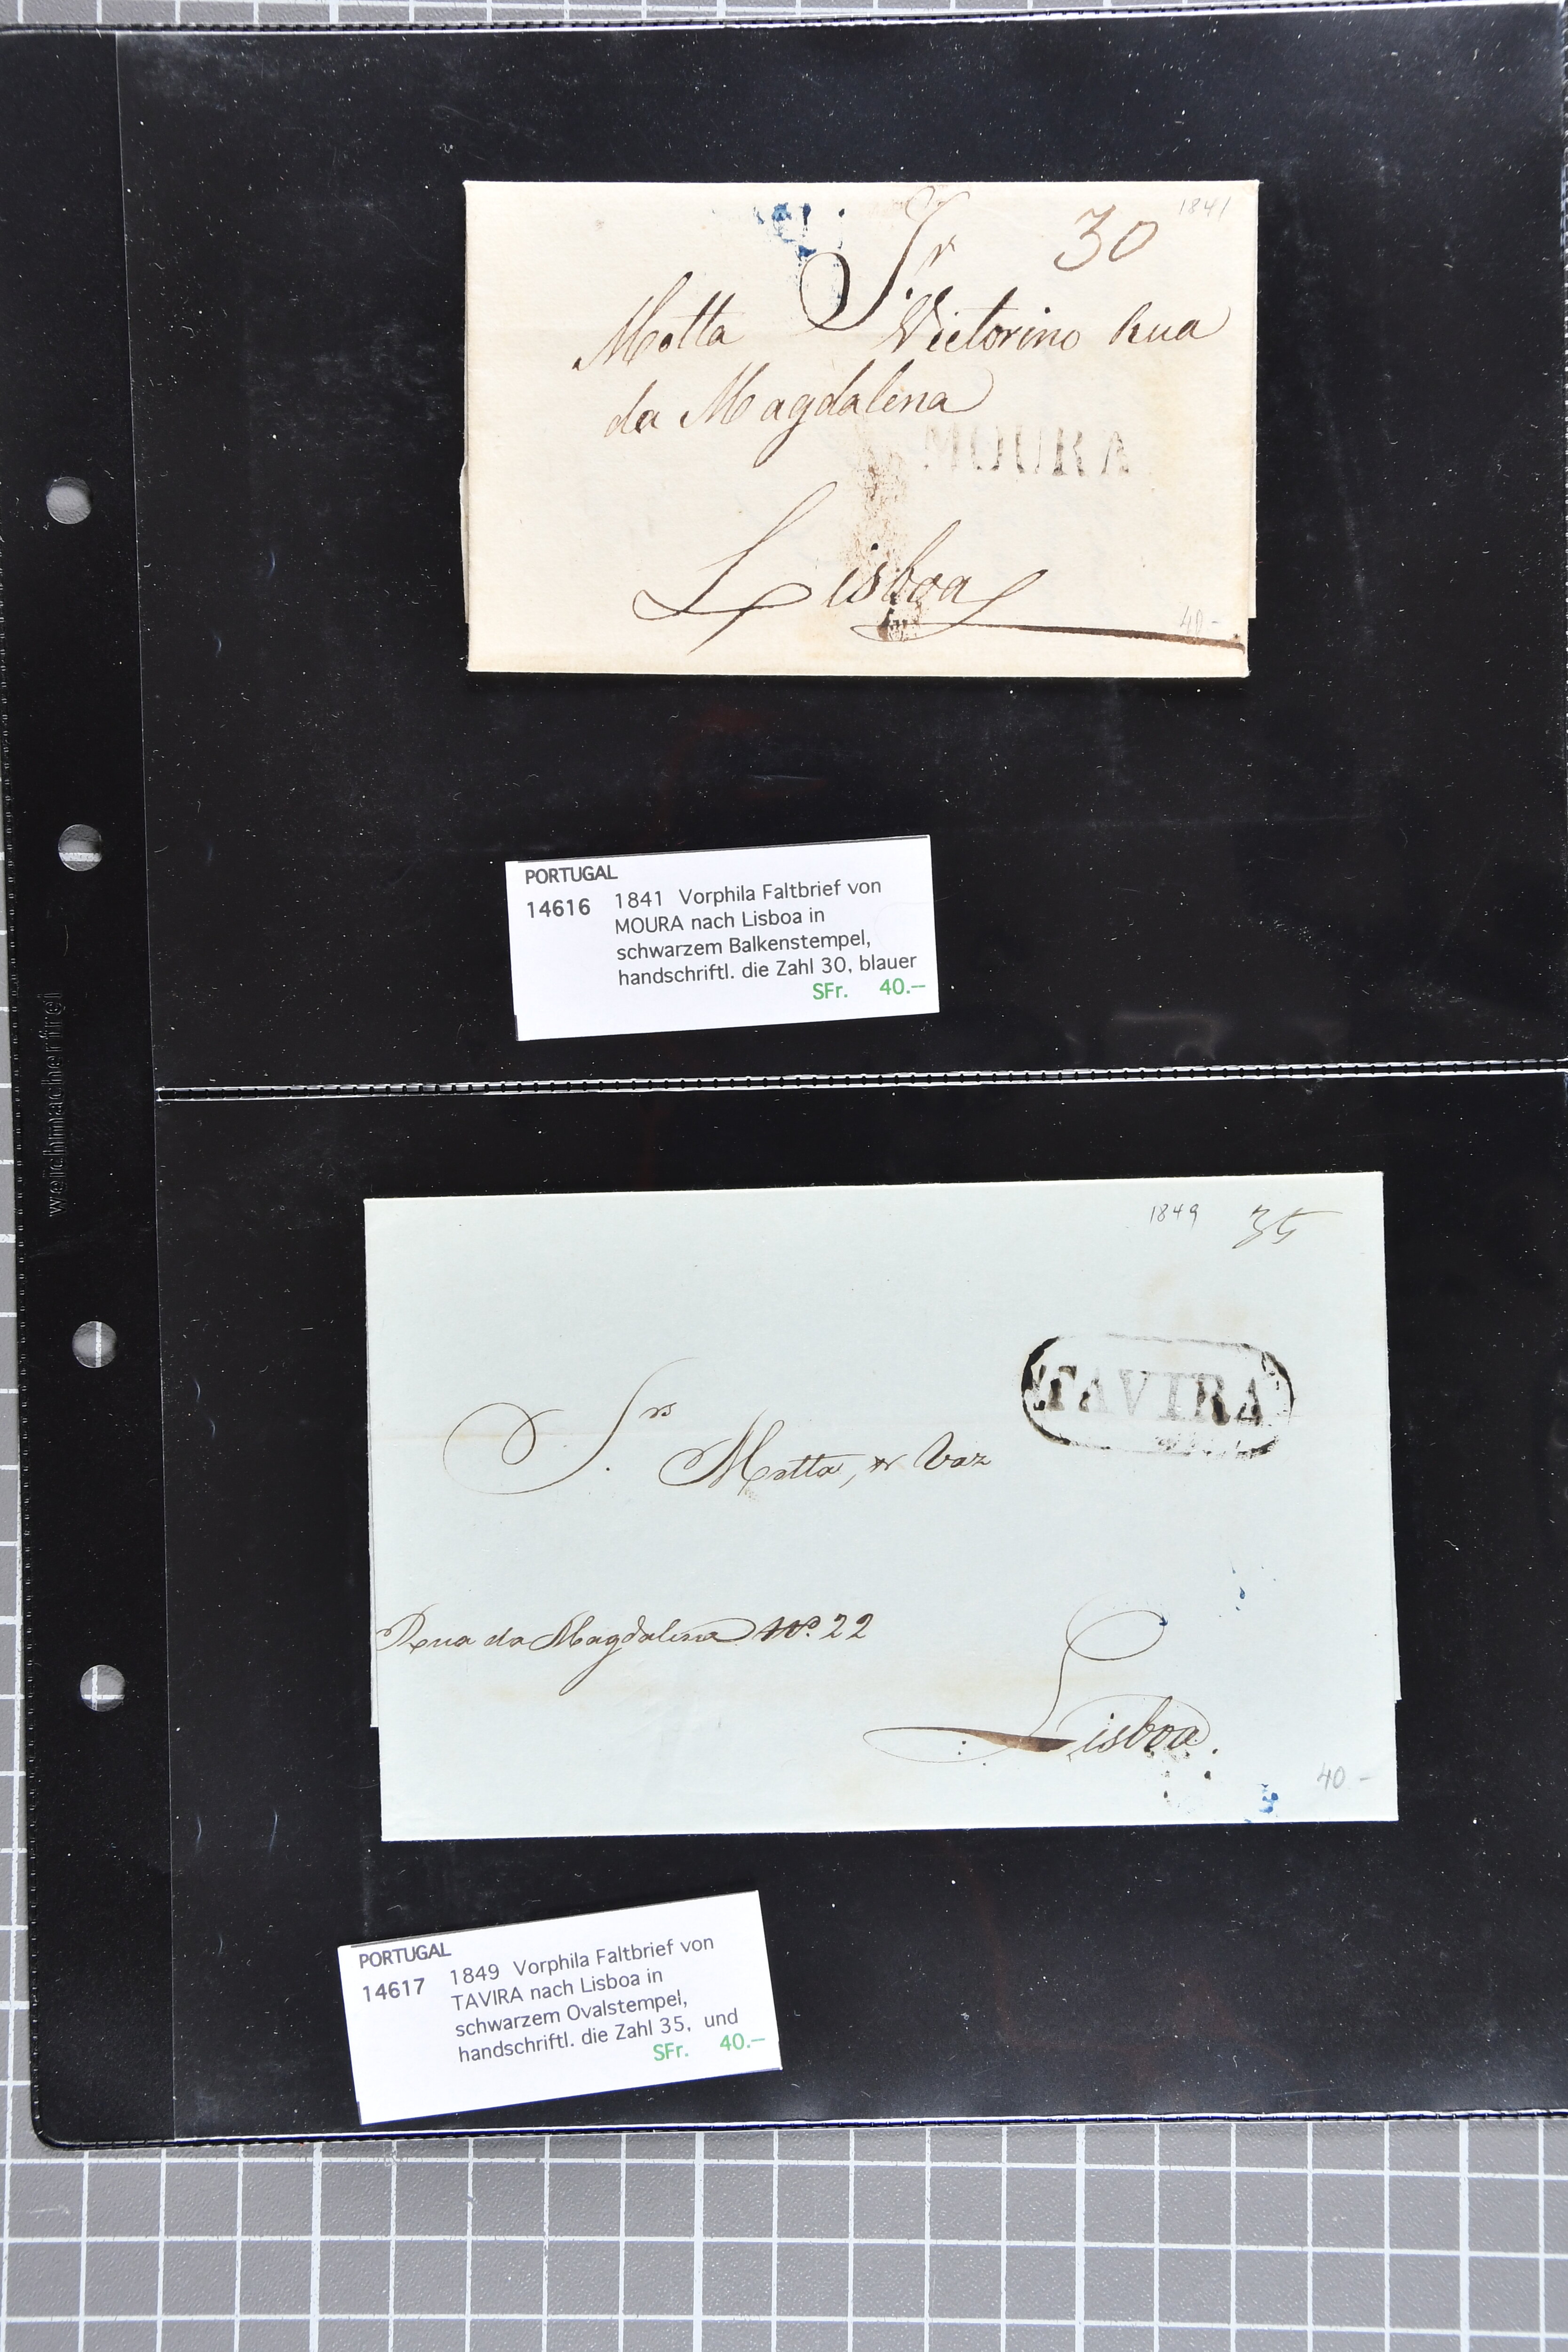 1841
30
Sr
Motta Victorino Rua
da Magdalena
MOURA
Lisboa
40-
PORTUGAL
14616 1841 Vorphila Faltbrief von
MOURA nach Lisboa in
schwarzem Balkenstempel,
handschriftl. die Zahl 30, blauer
SFr. 40.—
weichmacherfrei
1849 35
TAVIRA
Srs
Motta, & Vaz
Rua da Magdalena No. 22
Lisboa.
40-
PORTUGAL
14617 1849 Vorphila Faltbrief von
TAVIRA nach Lisboa in
schwarzem Ovalstempel,
handschriftl. die Zahl 35, und
SFr. 40.—